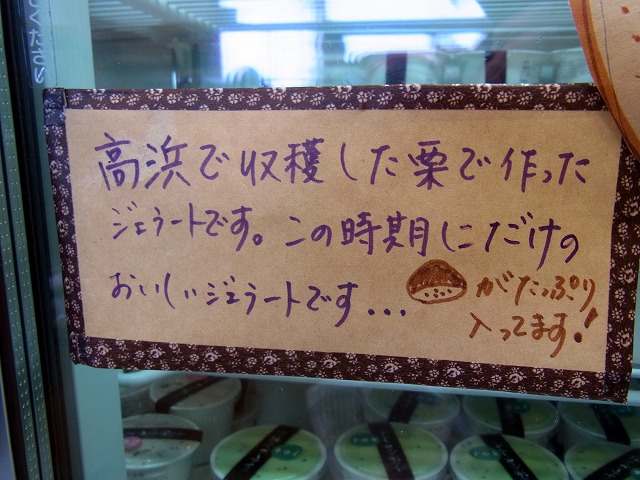 高浜で収穫した栗で作った
ジェラートです。この時期しこだけの
おいしいジェラートです...
がたっぷり
入ってます!